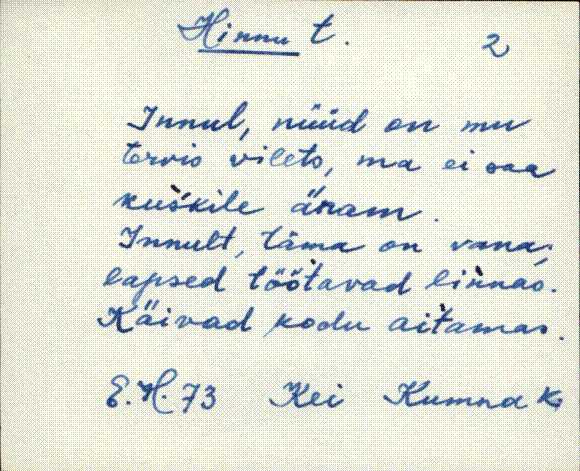 Hinnu t.
2
Innul, nüüd on mu
tervis vilets, ma ei saa
kuśkile äńam.
Innult, täma on vana;
lapsed töötavad linnas.
Käivad kodu aitamas.
E.H. 73 Kei Kumna k.